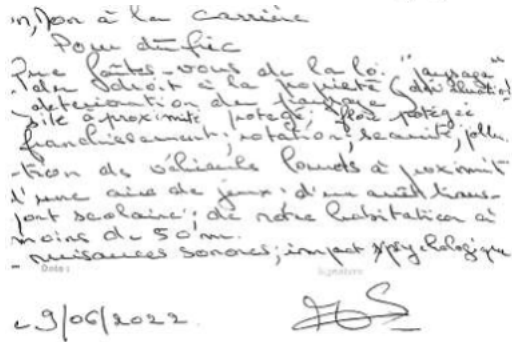 n, Non à la carrière
Pour du fric
Que faîtes-vous de la loi "paysage"
du droit à la propriété (dévaluation
déterioration du paysage
site à proximité protégé, flore protégée
franchissement, rotation, sécurité, pollu
-tion de véhicules lourds à proximit
d'une aire de jeux, d'un arrêt trans-
port scolaire; de notre habitation à
moins de 50m.
- nuisances sonores; impact psychologique
Date : Signature
9/06/2022